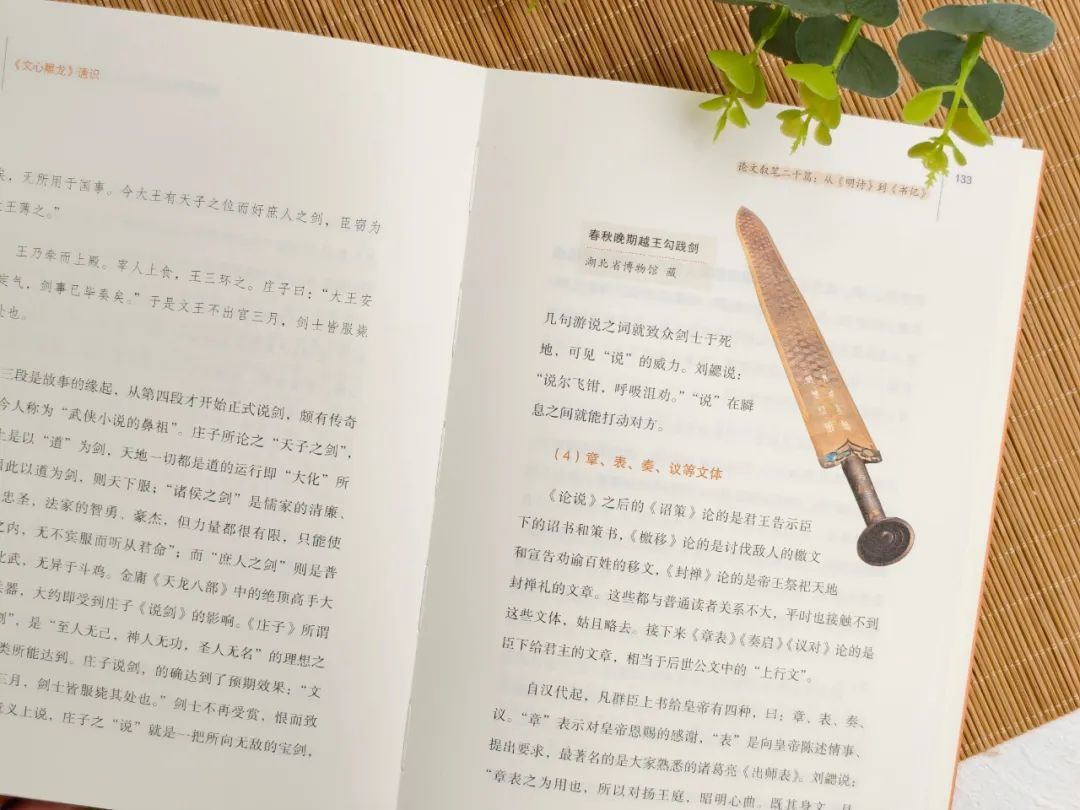 《文心雕龙》通识
矣，无所用于国事。今大王有天子之位而好庶人之剑，臣窃为
大王薄之。”
王乃牵而上殿。宰人上食，王三环之。庄子曰：“大王安
定气，剑事已毕奏矣。”于是文王不出宫三月，剑士皆服毙
处也。
三段是故事的缘起，从第四段才开始正式说剑，颇有传奇
今人称为“武侠小说的鼻祖”。庄子所论之“天子之剑”，
上是以“道”为剑，天地一切都是道的运行即“大化”所
因此以道为剑，则天下服；“诸侯之剑”是儒家的清廉、
忠圣，法家的智勇、豪杰，但力量都很有限，只能使
之内，无不宾服而听从君命”；而“庶人之剑”则是普
比武，无异于斗鸡。金庸《天龙八部》中的绝顶高手大
兵器，大约即受到庄子《说剑》的影响。《庄子》所谓
剑”，是“至人无己，神人无功，圣人无名”的理想之
类所能达到。庄子说剑，的确达到了预期效果：“文
三月，剑士皆服毙其处也。”剑士不再受赏，恨而致
意义上说，庄子之“说”就是一把所向无敌的宝剑，
论文叙笔二十篇：从《明诗》到《书记》 133
春秋晚期越王勾践剑
湖北省博物馆 藏
几句游说之词就致众剑士于死
地，可见“说”的威力。刘勰说：
“说尔飞钳，呼吸沮劝。”“说”在瞬
息之间就能打动对方。
（4）章、表、奏、议等文体
《论说》之后的《诏策》论的是君王告示臣
下的诏书和策书，《檄移》论的是讨伐敌人的檄文
和宣告劝谕百姓的移文，《封禅》论的是帝王祭祀天地
封禅礼的文章。这些都与普通读者关系不大，平时也接触不到
这些文体，姑且略去。接下来《章表》《奏启》《议对》论的是
臣下给君主的文章，相当于后世公文中的“上行文”。
自汉代起，凡群臣上书给皇帝有四种，曰：章、表、奏、
议。“章”表示对皇帝恩赐的感谢，“表”是向皇帝陈述情事、
提出要求，最著名的是大家熟悉的诸葛亮《出师表》。刘勰说：
“章表之为用也，所以对扬王庭，昭明心曲。既其身文，且